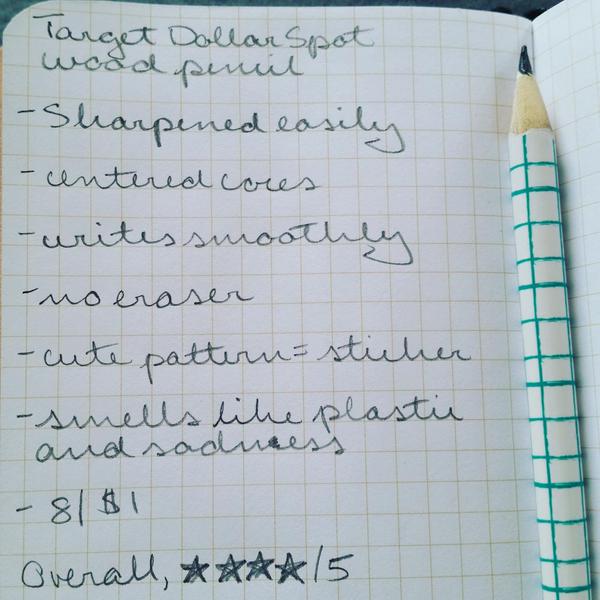 Target Dollar Spot
wood pencil
- Sharpened easily
- centered cores
- writes smoothly
- no eraser
- cute pattern = sticker
- smells like plastic
and sadness
- 8/$1
Overall, ★★★★/5